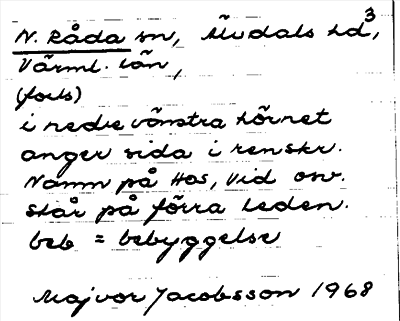 3
N. Råda sn, Älvdals hd,
Värml. län,
(forts)
i nedre vänstra hörnet
anger sida i renskr.
Namn på Hos, Vid osv.
står på förra leden.
beb = bebyggelse
Majvor Jacobsson 1968